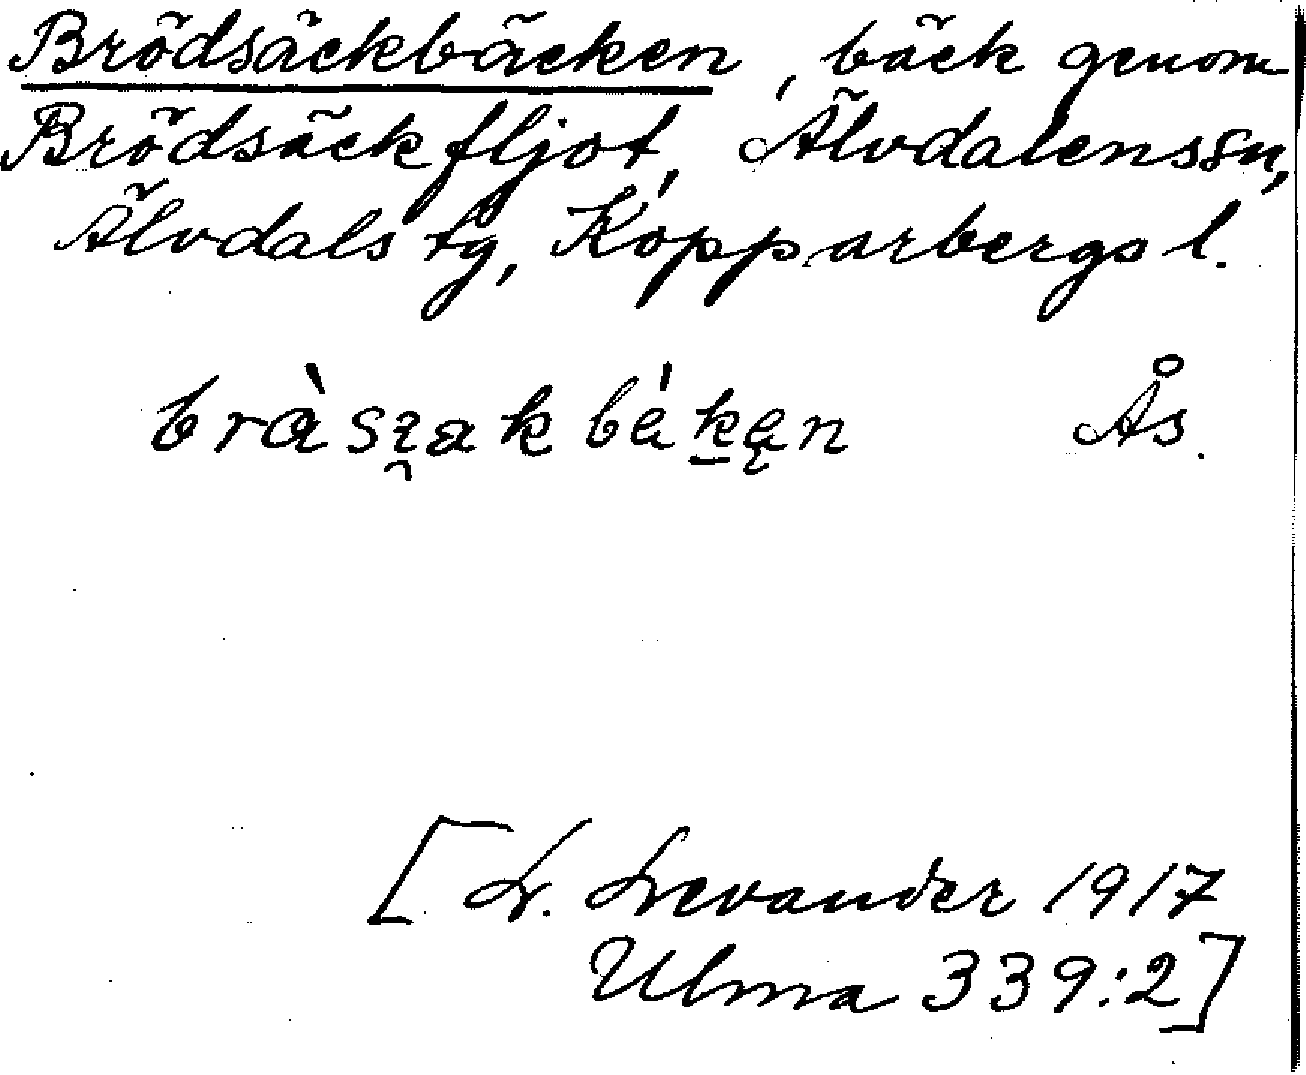 Brödsäckbäcken, bäck genom
Brödsäckfljot, Älvdalenssn,
Älvdals tg, Kopparbergs l.
Ås.
[L. Levander 1917
Ulma 339:2]